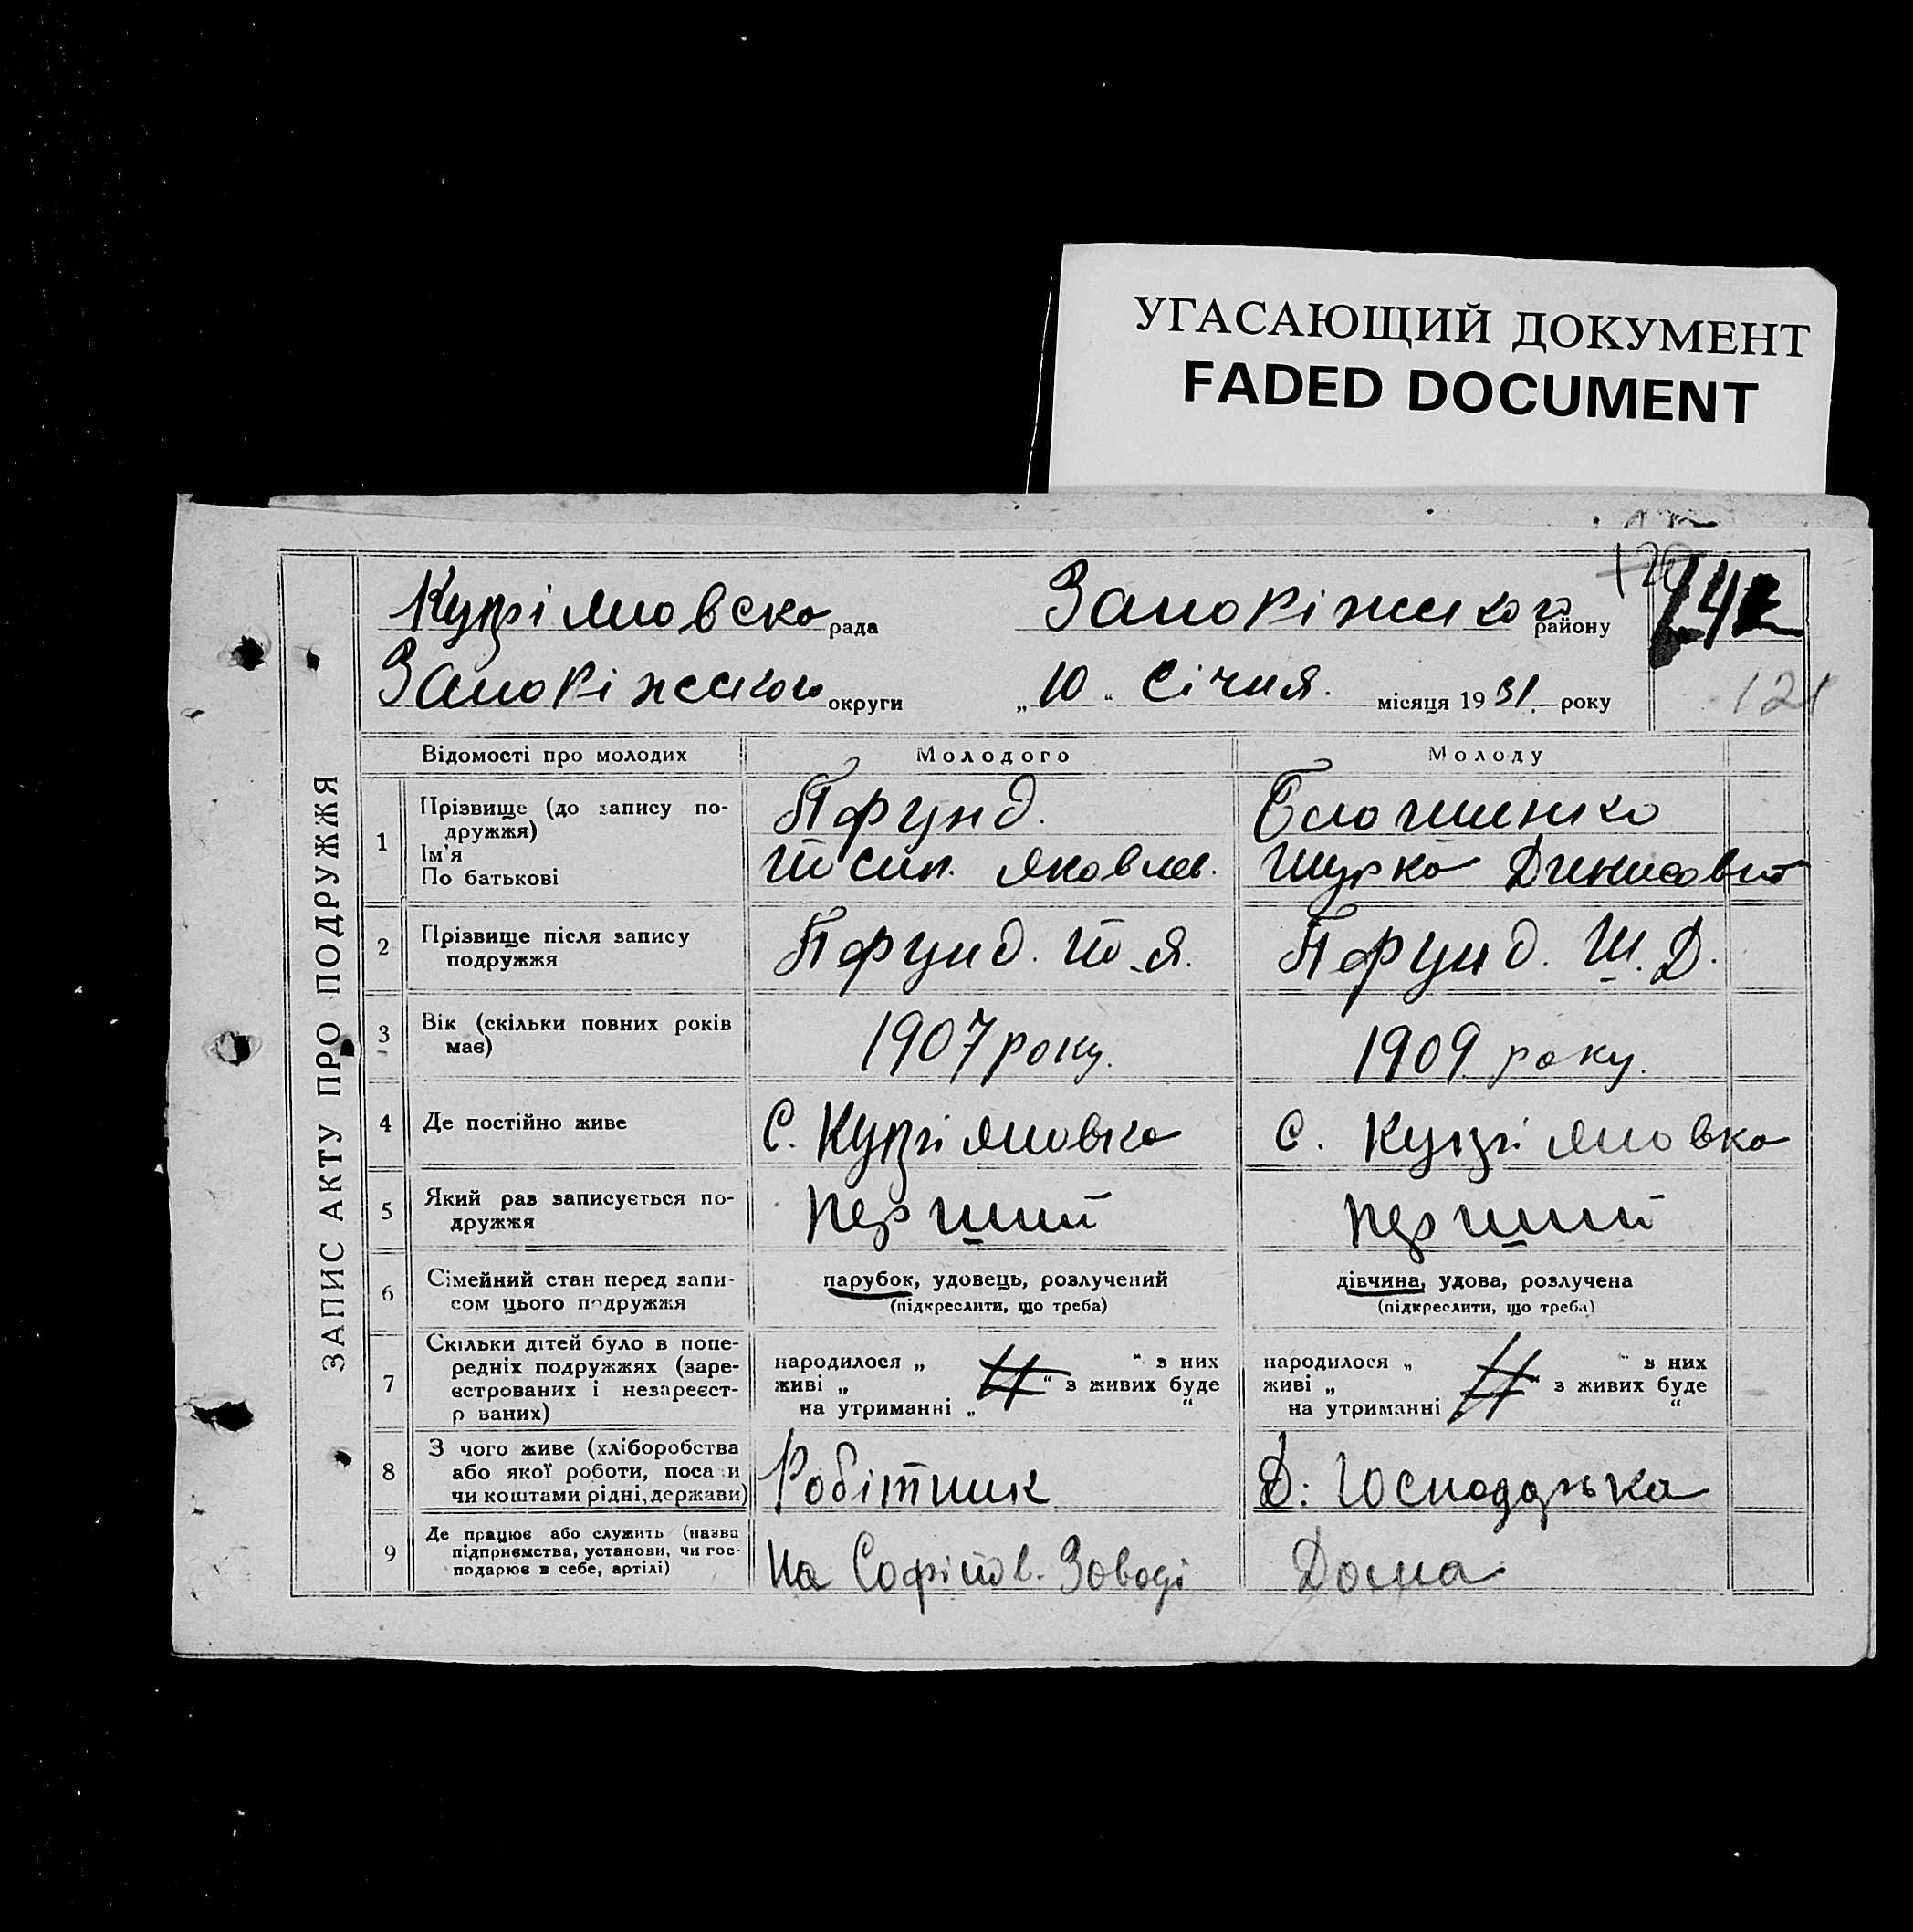 УГАСАЮЩИЙ ДОКУМЕНТ
FADED DOCUMENT
ЗАПИС АКТУ ПРО ПОДРУЖЖЯ
Купріяновска рада Запоріжского району
Запоріжского округи „10“ Січня. місяця 1931. року
121
Відомості про молодих Молодого Молоду
1 Прізвище (до запису по-
дружжя)
Ім'я
По батькові
Пфунд.
Йосип. Яковлев.
Шурка
2 Прізвище після запису
подружжя
Пфунд. Й.Я.
Пфунд. Ш.Д.
3 Вік (скільки повних років
має)
1907 року.
1909 року.
4 Де постійно живе С. Купріяновка С. Купріяновка
5 Який раз записується по-
дружжя
перший
перший
6 Сімейний стан перед запи-
сом цього подружжя
парубок, удовець, розлучений
(підкреслити, що треба)
дівчина, удова, розлучена
(підкреслити, що треба)
7 Скільки дітей було в попе-
редніх подружжях (заре-
єстрованих і незареєст-
р ваних)
народилося „ “ з них
живі „ “ з живих буде
на утриманні „ “
народилося „ “ з них
живі „ “ з живих буде
на утриманні „ “
8 З чого живе (хліборобства
або якої роботи, поса и
чи коштами рідні, держави)
Робітник
Д. Господарька
9 Де працює або служить (назва
підприємства, установи, чи гос-
подарює в себе, артілі)
На Софіїов. Заводі
Дома